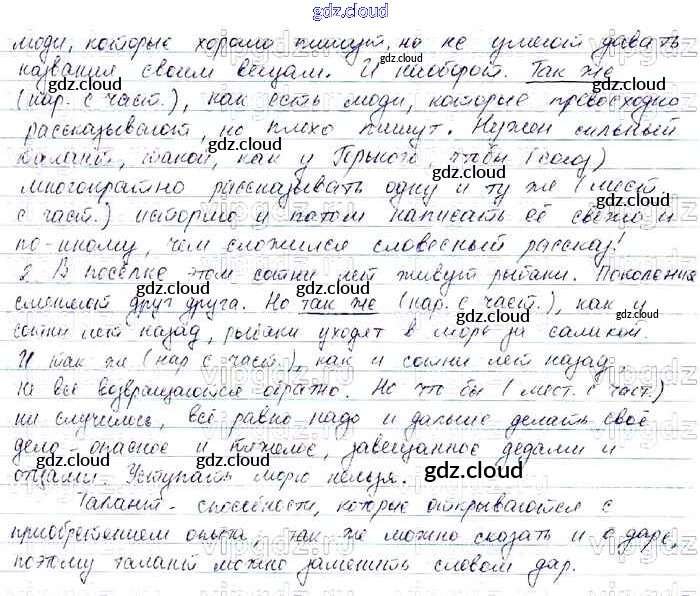 gdz.cloud
люди, которые хорошо пишут, но не умеют давать
названия своим вещам. И наоборот. Так же
(нар. с част.), как есть люди, которые превосходно
рассказывают, но плохо пишут. Нужен сильный
талант, такой, как у Горького, чтобы (союз)
многократно рассказывать одну и ту же (мест.
с част.) историю и потом написать её свежо и
по-иному, чем сложился словесный рассказ!
2. В посёлке этом сотни лет живут рыбаки. Поколения
сменяют друг друга. Но так же (нар. с част.), как и
сотни лет назад, рыбаки уходят в море за салакой.
И так же (нар. с част.), как и сотни лет назад
не все возвращаются обратно. Но что бы (мест. с част.)
ни случилось, всё равно надо и дальше делать своё
дело - опасное и тяжелое, завещанное дедами и
отцами. Уступать морю нельзя.
Талант - способности, которые открываются с
приобретением опыта, так же можно сказать и о даре,
поэтому талант можно заменить словом дар.